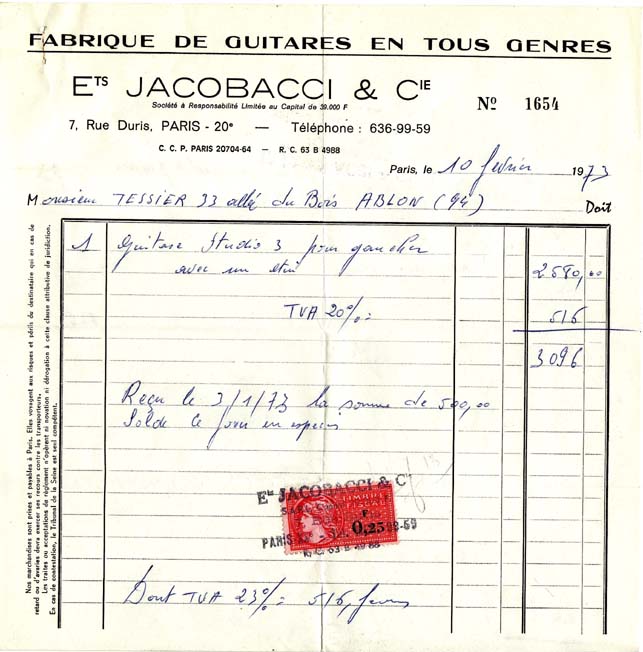 FABRIQUE DE GUITARES EN TOUS GENRES
ETS JACOBACCI & CIE
Société à Responsabilité Limitée au Capital de 39.000 F
Nº 1654
7, Rue Duris, PARIS - 20e — Téléphone : 636-99-59
C. C. P. PARIS 20704-64 — R. C. 63 B 4988
Paris, le 10 février 1973
Monsieur TESSIER 33 allée du Bois ABLON (94) Doit
1 Guitare Studio 3 pour gaucher
avec un étui 2580,00
TVA 20% = 516
3096
Reçu le 3/1/73 la somme de 500,00
Solde ce jour en espèces
Ets JACOBACCI & Cie
TIMBRE
FISCAL
0,25
PARIS
R. C. 63 B 4988
Dont TVA 23% = 516, francs
Nos marchandises sont prises et payables à Paris. Elles voyagent aux risques et périls du destinataire qui en cas de
retard ou d'avaries devra exercer ses recours contre les transporteurs.
Les traites ou acceptations de règlement n'opèrent ni novation ni dérogation à cette clause attributive de juridiction.
En cas de contestation, le Tribunal de la Seine est seul compétent.